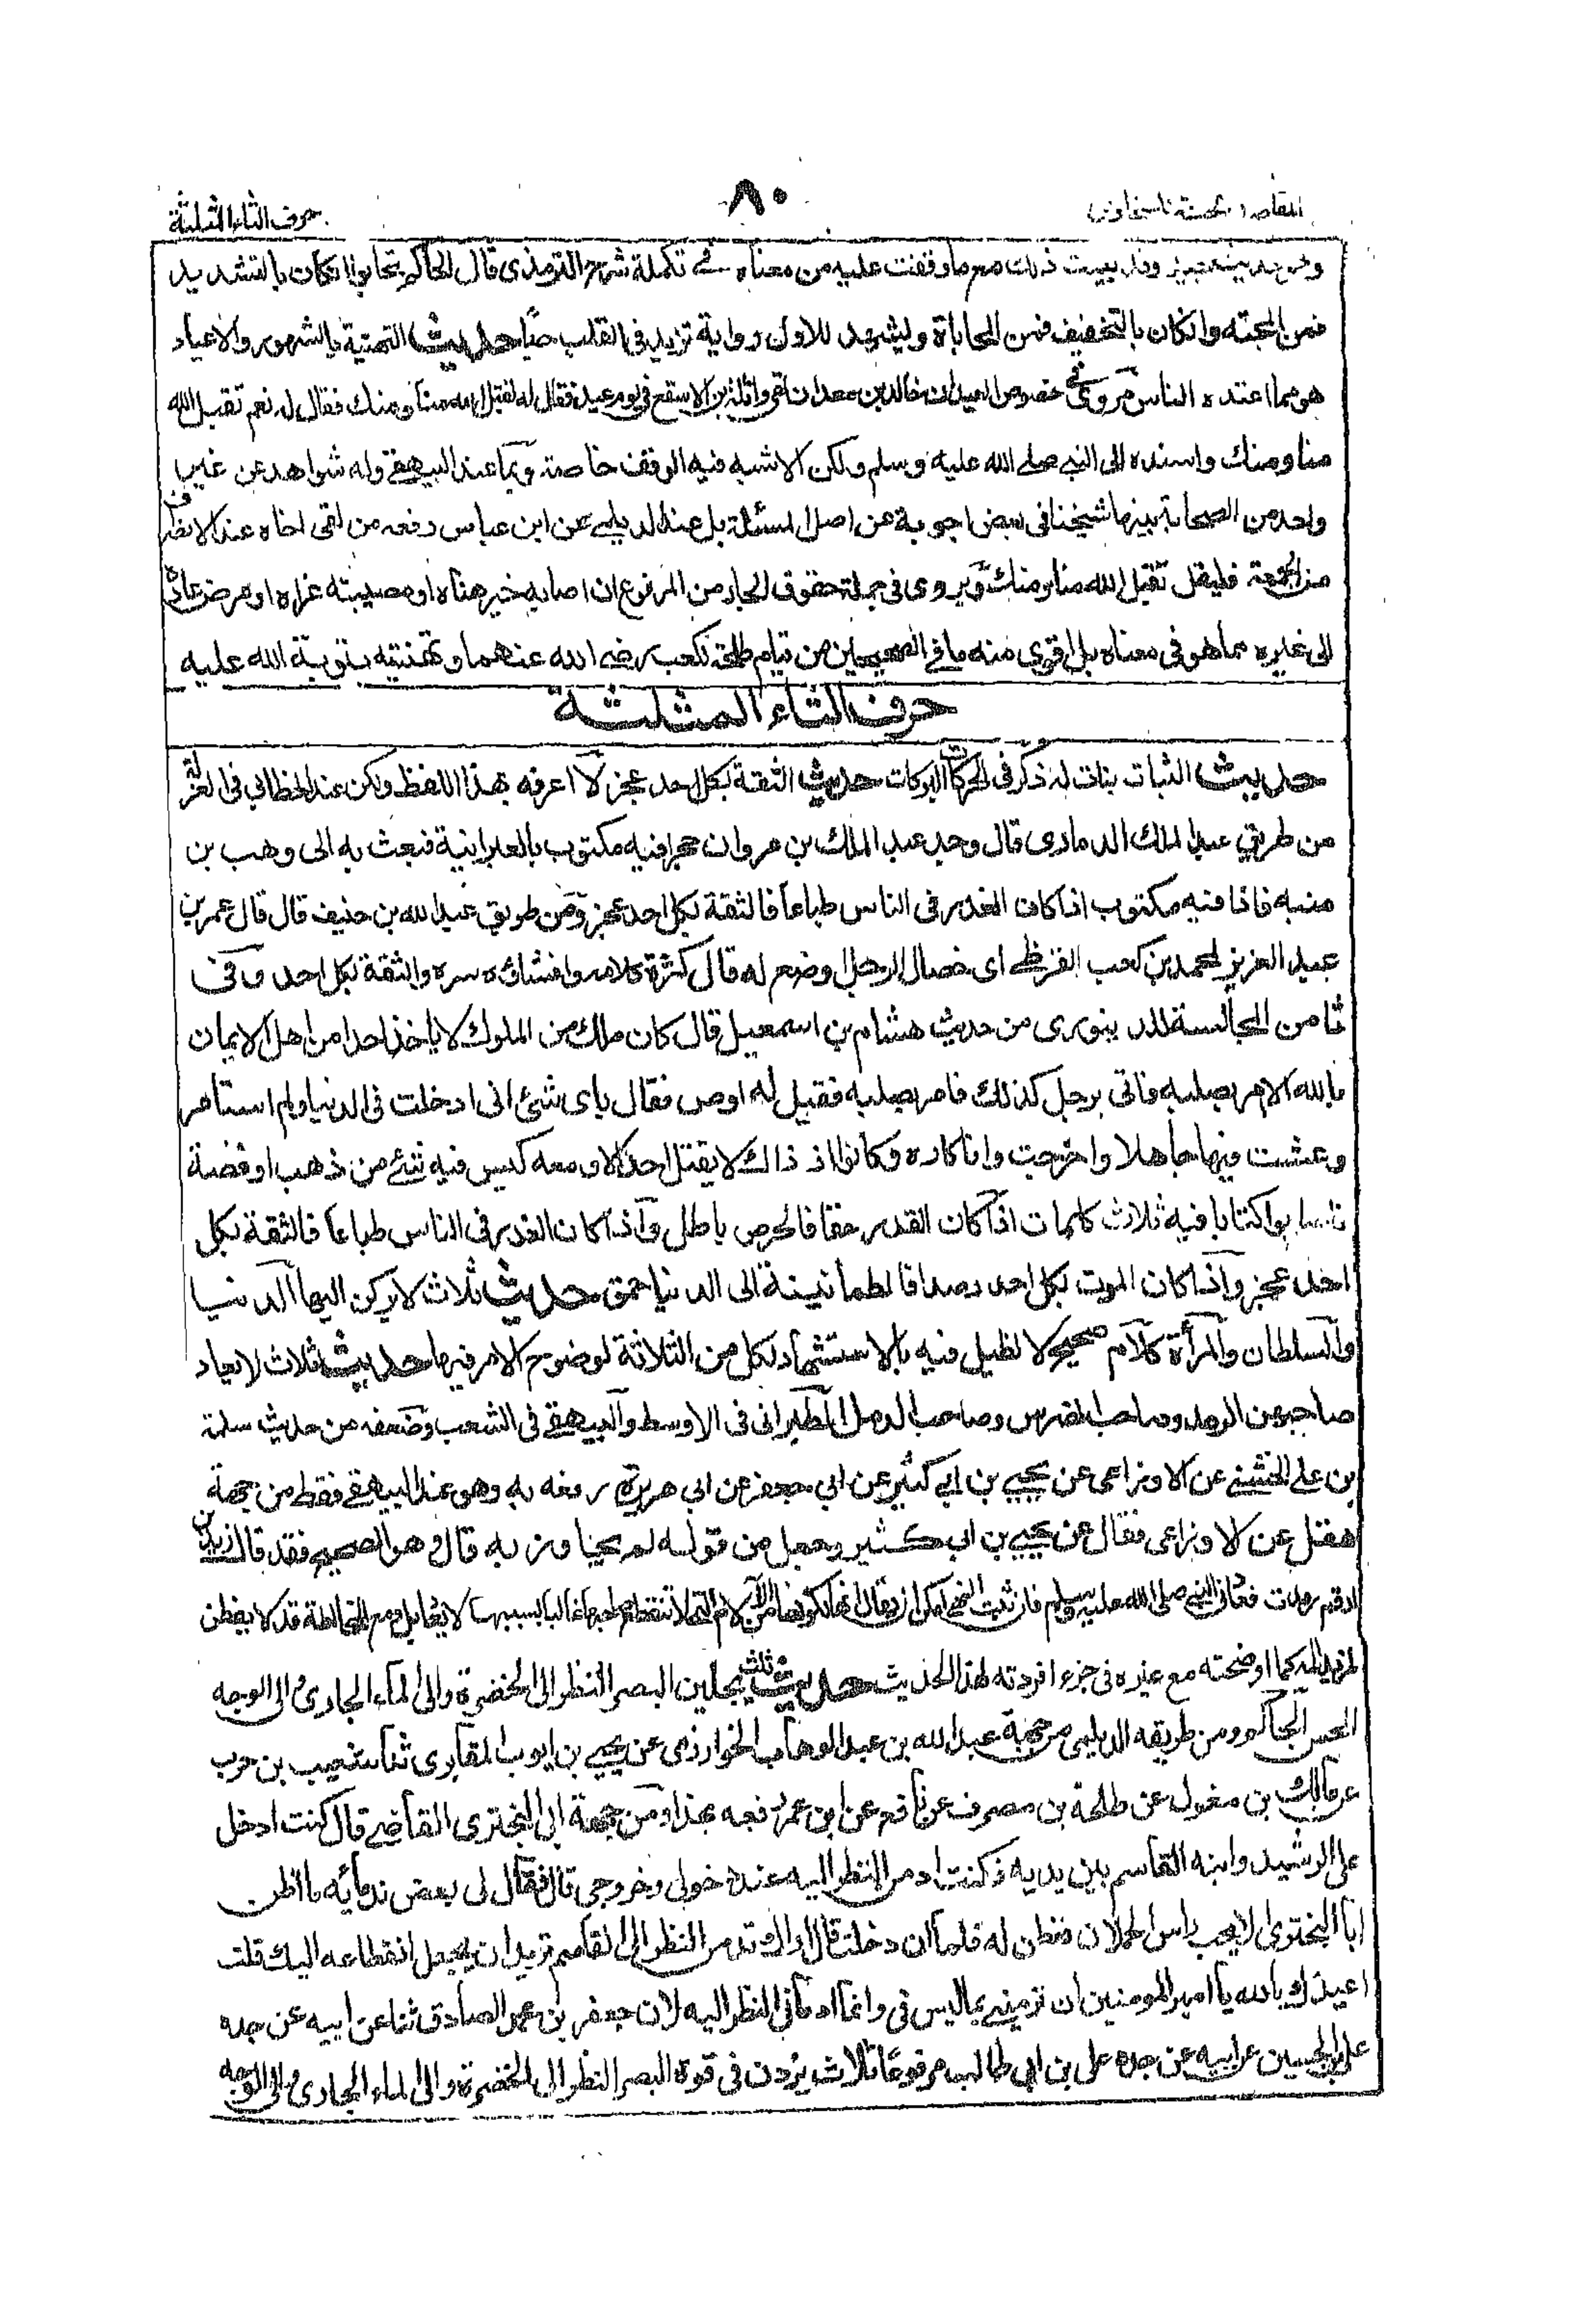 حرف الثاء المثلثة
٨٠
المقاصد الحسنة للسخاوى
وقد بينت ذلك مع ما وقفت عليه من معناه فى تكملة شرح الترمذى قال الحاكم تحابوا انكان بالتشديد
فمن المحبته وانكان بالتخفيف فمن المحاباة وليشهد للاول رواية تزيد فى القلب حبًّا حديث التهنية بالشهور والاعياد
هو مما اعتده الناس مروى فى خصوص العيد ان خالد بن معدان لقى واثلة بن الاسقع فى يوم عيد فقال له تقبل الله منا ومنك فقال له نعم تقبل الله
منا ومنك واسنده الى النبى صلى الله عليه وسلم ولكن الاشبه فيه الوقف خاصته عند البيهقى وله شواهد عن غير
واحد من الصحابة بينها شيخنا فى بعض اجوبة عن اصل المسئلة بل عند الديلمى عن ابن عباس رفعه من لقى اخاه عند الانصراف
من الجمعة فليقل تقبل الله منا ومنك ويروى فى جملة حقوق الجار من المرفوع ان اصابه خير هناه او مصيبته عزاه او مرض عاده
الى غيره مما هو فى معناه بل اقوى منه ما فى الصحيحين من قيام طلحة لكعب رضى الله عنهما وتهنيته بتوبة الله عليه
حرف الثاء المثلثة
حديث الثبات نبات له ذكر فى الحركات البركات حديث الثقة بكل احد عجز لا اعرفه بهذا اللفظ ولكن عند الخطابى فى العزلة
من طريق عبد الملك الدمارى قال وجد عبد الملك بن مروان حجرا فيه مكتوب بالعبرانية فبعث به الى وهب بن
منبه فاذا فيه مكتوب اذا كان الغدر فى الناس طباعا فالثقة بكل احد عجز ومن طريق عبد الله بن حنيف قال قال عمر بن
عبد العزيز لمحمد بن كعب القرظى اى خصال الرجل اوضع له قال كثرة كلامه وافشاؤه سره والثقة بكل احد وفى
ثامن المجالسة للدينورى من حديث هشام بن اسمعيل قال كان ملك من الملوك لا ياخذ احدا من اهل الايمان
بالله الا امر بصلبه فاتى برجل كذلك فامر بصلبه فقيل له اوص فقال باى شئ انى ادخلت فى الدنيا ولم استامر
وعشت فيها جاهلا واخرجت وانا كاره وكانوا اذ ذاك لا يقتل احد الا ومعه كيس فيه شئ من ذهب او فضة
كتابا فيه ثلاث كلمات اذا كان القدر حقا فالحرص باطل واذا كان الغدر فى الناس طباعا فالثقة بكل
احد عجز واذا كان الموت بكل احد رصدا فالطمأنينة الى الدنيا حمق حديث ثلاث لا يركن اليها الدنيا
والسلطان والمرأة كلام صحيح لا نطيل فيه بالاستشهاد لكل من الثلاثة لوضوح الامر فيها حديث ثلاث لا يعاد
صاحبهن الرمد وصاحب الضرس وصاحب الدمل الطبرانى فى الاوسط والبيهقى فى الشعب وضعفه من حديث سلمة
بن على الخشنى عن الاوزاعى عن يحيى بن ابى كثير عن ابى جعفر عن ابى هريرة رفعه به وهو عند البيهقى فقط من جهة
هقل عن الاوزاعى فقال عن يحيى بن ابى كثير وجعل من قوله لم يجاوز به قال وهو الصحيح فقد قال زيد بن
ارقم رمدت فعادنى النبى صلى الله عليه وسلم فان ثبت النهى امكن ان يقال انها لكونها من الالام التى لا ينقطع صاحبها غالبا بسببها لا يعاد بل ومع المخالطة قد لا يفطن
لمزيد المه كما اوضحته مع غيره فى جزء افردته لهذا الحديث حديث ثلث يجلين البصر النظر الى الخضرة والى الماء الجارى والى الوجه
الحسن الحاكم ومن طريقه الديلمى من جهة عبد الله بن عبد الوهاب الخوارزمى عن يحيى بن ايوب المقابرى ثنا شعيب بن حرب
عن مالك بن مغول عن طلحة بن مصرف عن نافع عن ابن عمر رفعه بهذا ومن جهة ابى البخترى القاضى قال كنت ادخل
على الرشيد وابنه القاسم بين يديه فكنت ادمن النظر اليه عند دخولى وخروجى قال فقال لى بعض ندمائه ما اظن
ابا البخترى الا يحب راس الحملان ففطن له فلما ان دخلت قال اراك تدمن النظر الى القاسم تريد ان يجعل انقطاعه اليك قلت
اعيذك بالله يا امير المومنين ان ترمينى بما ليس فى وانما ادمانى النظر اليه لان جعفر بن محمد الصادق ثنا عن ابيه عن جده
على بن الحسين عن ابيه عن جده على بن ابى طالب مرفوعا ثلاث يزدن فى قوة البصر النظر الى الخضرة والى الماء الجارى والى الوجه